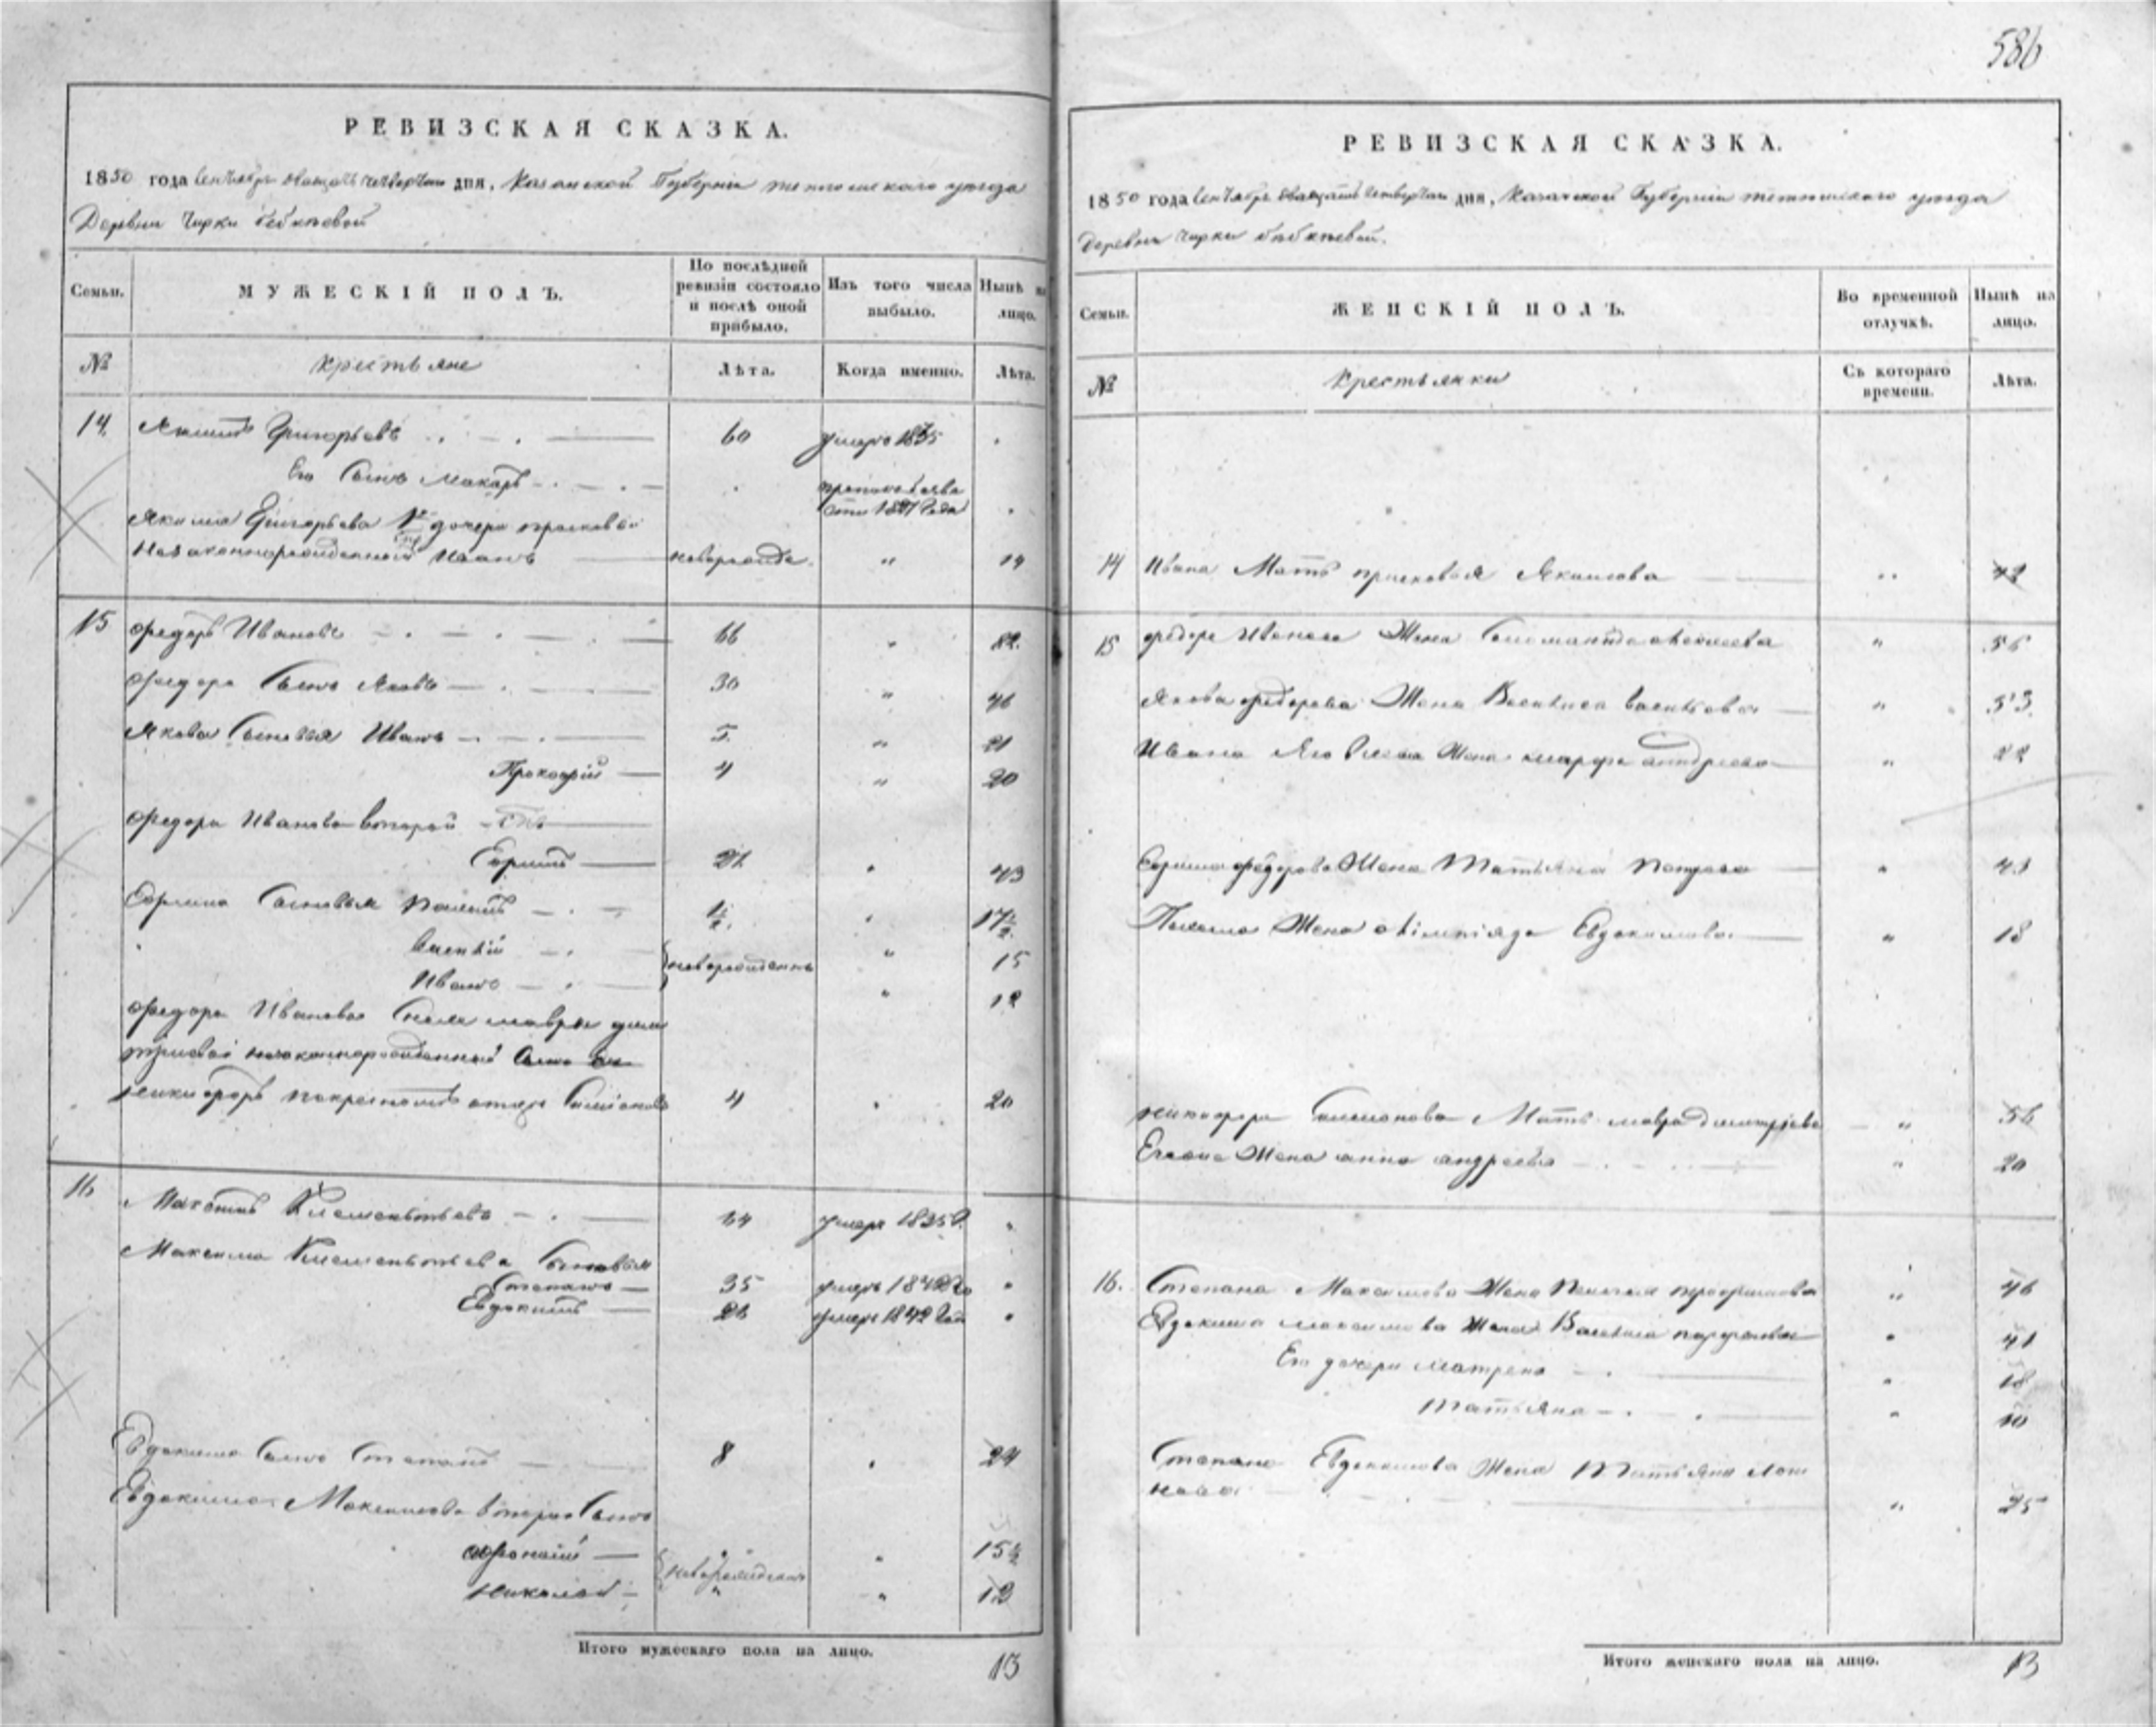 586
РЕВИЗСКАЯ СКАЗКА.
1850 года Сентября двадцать четвертаго дня, Казанской Губерніи тетюшскаго уезда
Деревни Чирки бебкеевой
Семьи. МУЖЕСКІЙ ПОЛЪ. По послѣдней ревизіи состояло и послѣ оной прибыло. Изъ того числа выбыло. Нынѣ на лицо.
№ Крестьяне Лѣта. Когда именно. Лѣта.
14. Якимъ Григорьевъ 60 умеръ 1835
Его Сынъ Макаръ
1837 Года
Якима Григорьева дочери прасковьи
Незаконнорожденный Иванъ новорожде. " 14
15 Федоръ Ивановъ 66 " 82.
Федора Сынъ Яковъ 30 " 46
Якова Сыновья Иванъ 5. " 21
Прокофій 4 " 20
Федора Иванова второй
Ефимъ 27 " 43
Ефима Сыновья 1½. " 17½.
Василій новорожденны " 15
Иванъ " 12
Федора Иванова Снохи мавры дми
тріевой незаконнорожденный
Никифоръ покрестному отцу 4 " 20
16 Максимъ Клементьевъ 64 умеръ 1835
Максима Клементьева Сыновья
Степанъ 35 умеръ
Евдокимъ 26 умеръ 1842 Года
Евдокима Сынъ Степанъ 8 " 24
Евдокима Максимова вторый Сынъ
Афонасій новорожденны " 15½
Николай " 12
Итого мужескаго пола на лицо. 13
РЕВИЗСКАЯ СКАЗКА.
1850 года Сентября двадцать четвертаго дня, Казанской Губерніи тетюшскаго уезда
Деревни Чирки бебкеевой.
Семьи. ЖЕНСКІЙ ПОЛЪ. Во временной отлучкѣ. Нынѣ на лицо.
№ Крестьянки Съ котораго времени. Лѣта.
14 Ивана Мать прасковья Якимова "
15 Федора Иванова Жена " 56
Якова Федорова Жена Василиса Васильева " 53.
Ивана Яковлева Жена марфа андреева " 22
Ефима Федорова Жена Татьяна Петрова " 43
Жена олімпіяда Евдокимова " 18
Никифора Мать мавра дмитріева " 56
Жена анна андреева " 20
16. Степана Максимова Жена " 46
Евдокима максимова Жена Василиса " 41
Его дочери Матрена " 18
Татьяна " 10
Степана Евдокимова Жена Татьяна
" 25
Итого женскаго пола на лицо. 13